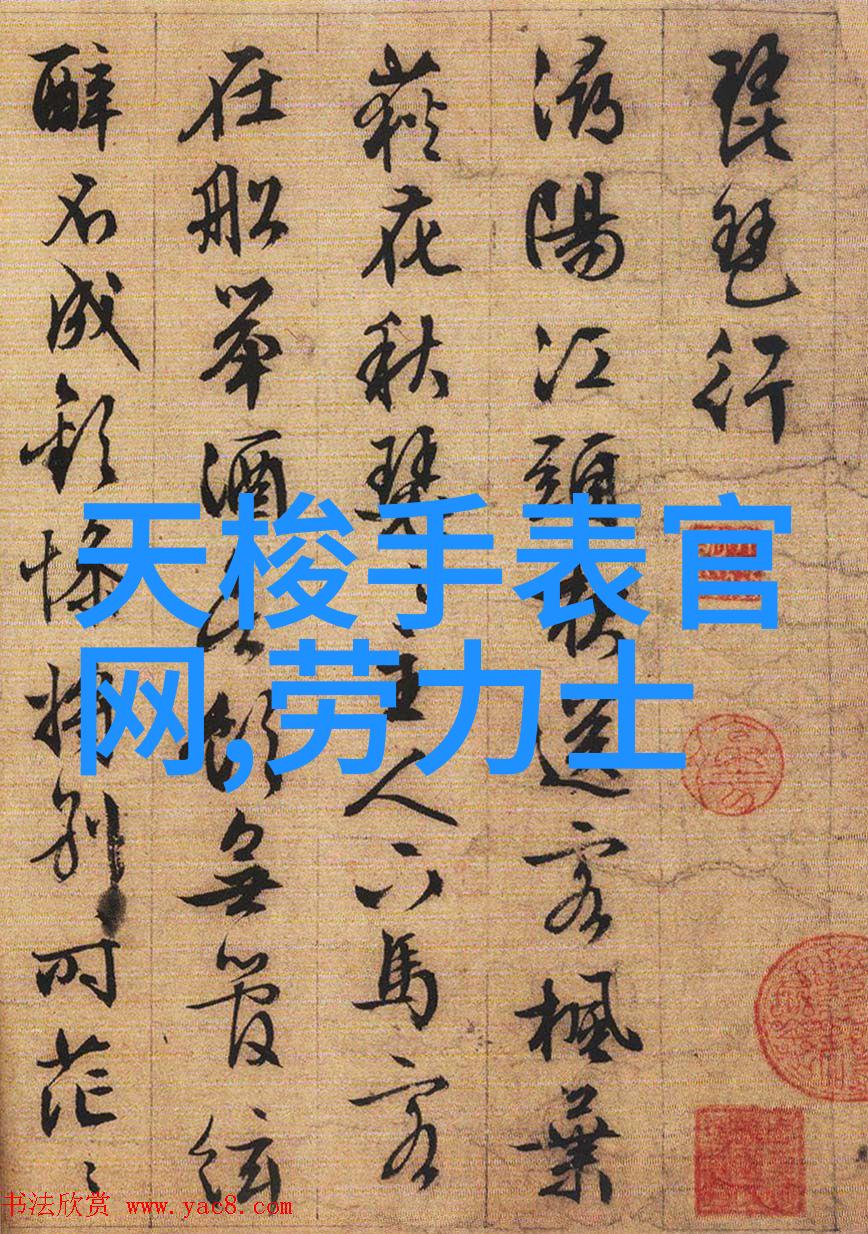 琵琶行
潯陽江頭送客楓葉
荻花秋瑟〻主人下馬客
在船舉酒飲無管絃
醉不成歡慘將別〻時茫〻
天梭手表官
网,劳力士
书法欣赏 www.yac8.com